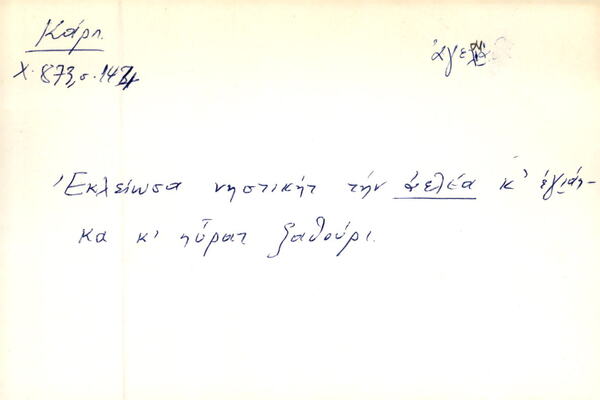 Κάρπ.
Χ. 873, σ. 147
Ἐκλείωσα νηστικὴτ τὴν ἀελέα κ' ἐγιάη-
κα κ' ηὗρατ ξαθούρι.